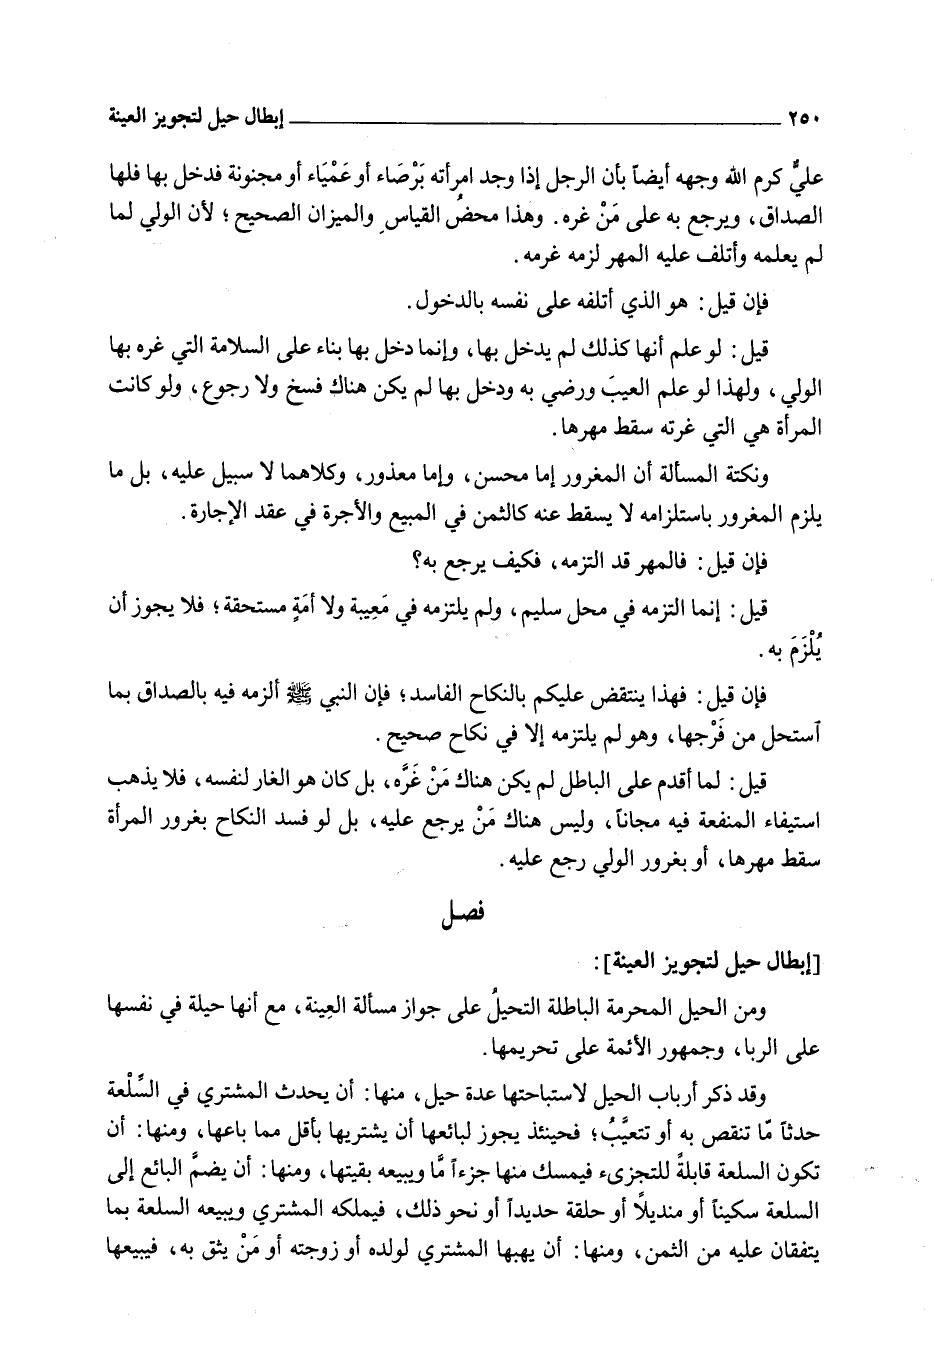 ٢٥٠ ـــــــــــــــــــــــــــــــ إبطال حيل لتجويز العينة
عليٌّ كرم الله وجهه أيضاً بأن الرجل إذا وجد امرأته بَرْصَاء أو عَمْيَاء أو مجنونة فدخل بها فلها
الصداق، ويرجع به على مَنْ غره. وهذا محضُ القياس والميزان الصحيح؛ لأن الولي لما
لم يعلمه وأتلف عليه المهر لزمه غرمه.
فإن قيل: هو الذي أتلفه على نفسه بالدخول.
قيل: لو علم أنها كذلك لم يدخل بها، وإنما دخل بها بناء على السلامة التي غره بها
الولي، ولهذا لو علم العيبَ ورضي به ودخل بها لم يكن هناك فسخ ولا رجوع، ولو كانت
المرأة هي التي غرته سقط مهرها.
ونكتة المسألة أن المغرور إما محسن، وإما معذور، وكلاهما لا سبيل عليه، بل ما
يلزم المغرور باستلزامه لا يسقط عنه كالثمن في المبيع والأجرة في عقد الإجارة.
فإن قيل: فالمهر قد التزمه، فكيف يرجع به؟
قيل: إنما التزمه في محل سليم، ولم يلتزمه في مَعِيبة ولا أمَةٍ مستحقة؛ فلا يجوز أن
يُلْزَمَ به.
فإن قيل: فهذا ينتقض عليكم بالنكاح الفاسد؛ فإن النبي ﷺ ألزمه فيه بالصداق بما
ٱستحل من فَرْجها، وهو لم يلتزمه إلا في نكاح صحيح.
قيل: لما أقدم على الباطل لم يكن هناك مَنْ غَرَّه، بل كان هو الغار لنفسه، فلا يذهب
استيفاء المنفعة فيه مجاناً، وليس هناك مَنْ يرجع عليه، بل لو فسد النكاح بغرور المرأة
سقط مهرها، أو بغرور الولي رجع عليه.
فصل
[إبطال حيل لتجويز العينة]:
ومن الحيل المحرمة الباطلة التحيلُ على جواز مسألة العِينة، مع أنها حيلة في نفسها
على الربا، وجمهور الأئمة على تحريمها.
وقد ذكر أرباب الحيل لاستباحتها عدة حيل، منها: أن يحدث المشتري في السِّلْعة
حدثاً مّا تنقص به أو تتعيَّبُ؛ فحينئذ يجوز لبائعها أن يشتريها بأقل مما باعها، ومنها: أن
تكون السلعة قابلةً للتجزىء فيمسك منها جزءاً مَّا ويبيعه بقيتها، ومنها: أن يضمَّ البائع إلى
السلعة سكيناً أو منديلًا أو حلقة حديداً أو نحو ذلك، فيملكه المشتري ويبيعه السلعة بما
يتفقان عليه من الثمن، ومنها: أن يهبها المشتري لولده أو زوجته أو مَنْ يثق به، فيبيعها